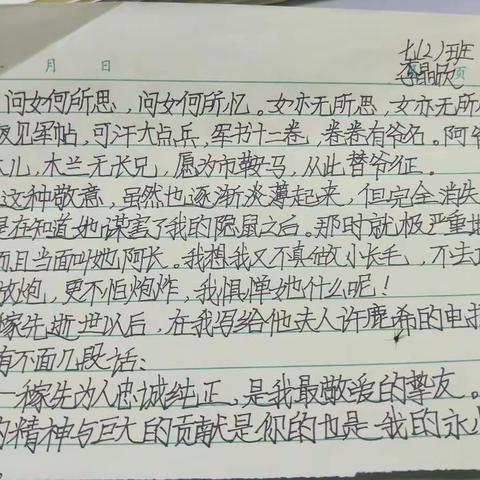 月 日
七(2)班
李晶欣 页
问女何所思,问女何所忆。女亦无所思,女亦无所
夜见军帖,可汗大点兵,军书十二卷,卷卷有爷名。阿爷
大儿,木兰无长兄,愿为市鞍马,从此替爷征。
这种敬意,虽然也逐渐淡薄起来,但完全消失
是在知道她谋害了我的隐鼠之后。那时就极严重地
而且当面叫她阿长。我想我又不真做小长毛,不去
放炮,更不怕炮炸,我惧惮她什么呢!
稼先逝世以后,在我写给他夫人许鹿希的电报
有不面几段话:
一稼先为人忠诚纯正,是我最敬爱的挚友。
的精神与巨大的贡献是你的也是我的永